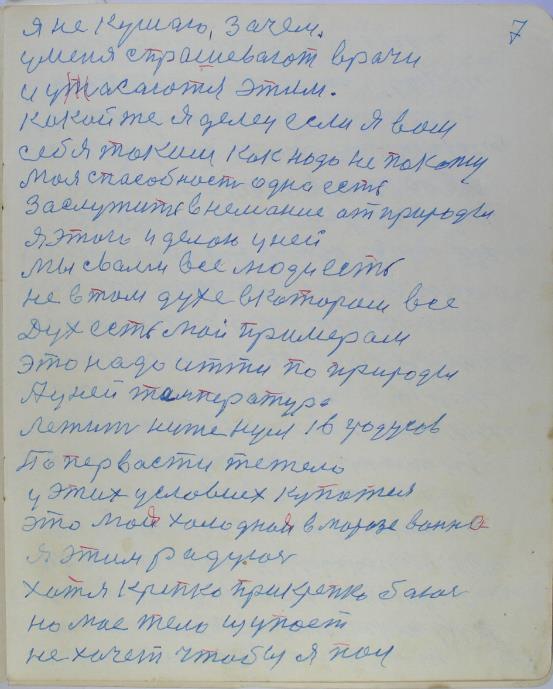 7
Я не кушаю, Зачем.
у меня страшевают врачи
и ужасаются этим.
Какой же я делец если я вам
себя таким как надо не покажу
Моя способность одна есть
Заслужить внемание от природы
Я этого и делаю у ней
Мы с вами все люди есть
не в том духе в котором все
Дух есть мой примерам
Это надо итти по природы
А у ней температура
Лежит ниже нуля 16 градусов
По первасти тежело
у этих условиех купатся
это моя холодная в морозе ванна
Я этим радуюся
хотя крепко прикрепко баюся
но мое тело щупает
не хочет чтобы я